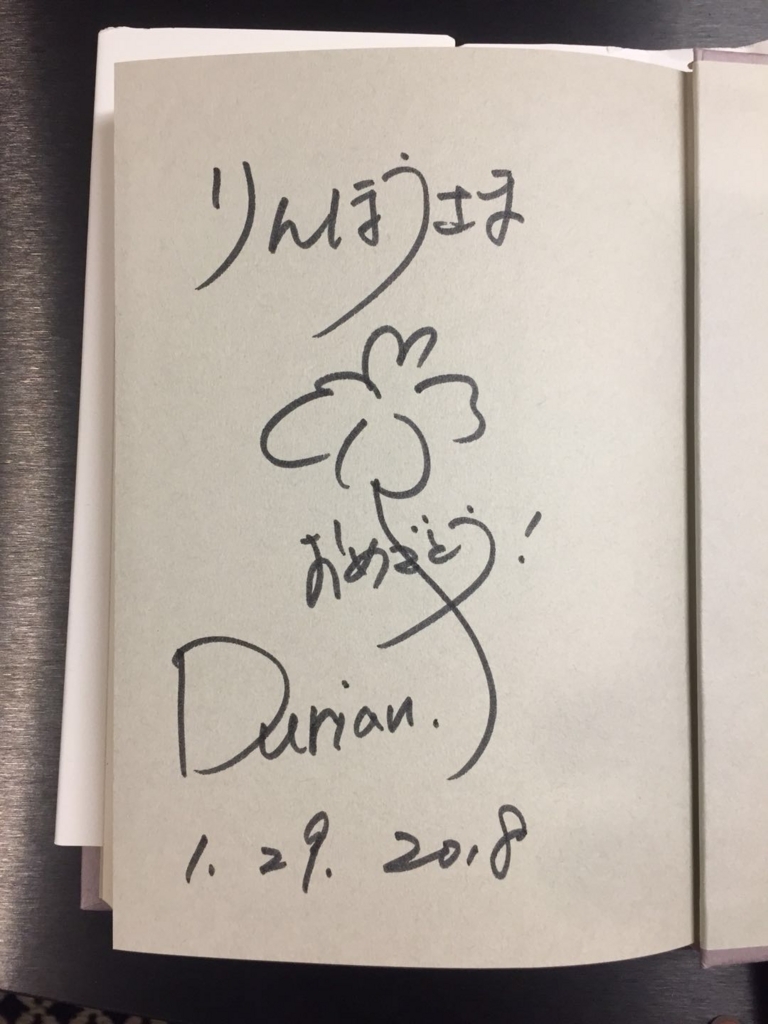 りんぼうさま
おめでとう!
Durian.
1. 29. 2018